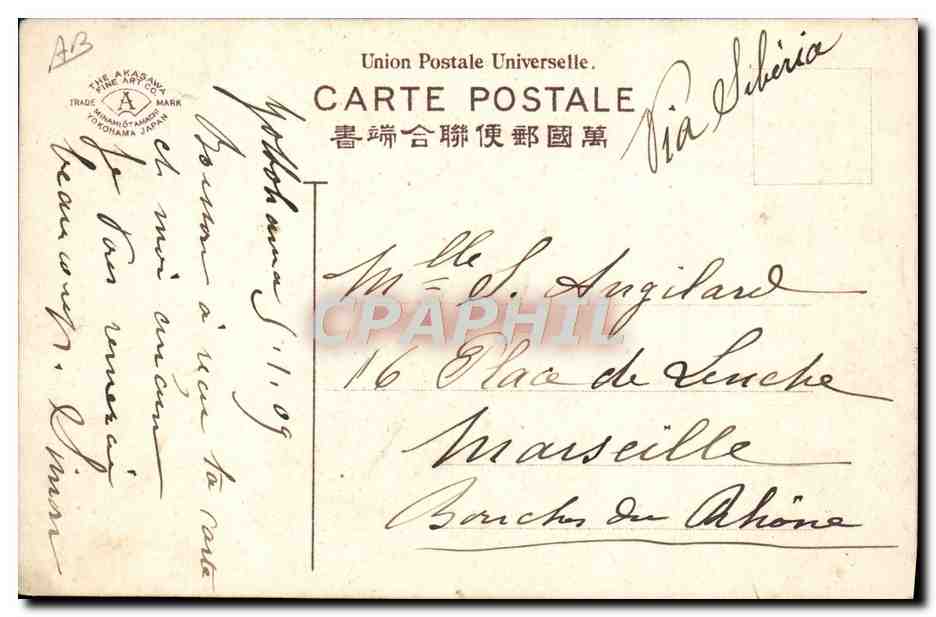 AB
THE AKASAWA
FINE ART CO.
TRADE A MARK
MINAMI ŌTAMACHI
YOKOHAMA JAPAN
Union Postale Universelle.
CARTE POSTALE
書端合聯便郵國萬
Via Sibéria
Yokohama 5.1.09
Boisson a reçu ta carte
et moi aucune
je vous remercie
beaucoup. Simon
Mlle S. Angilard
16 Place de Lenche
Marseille
Bouches du Rhône
CPAPHIL